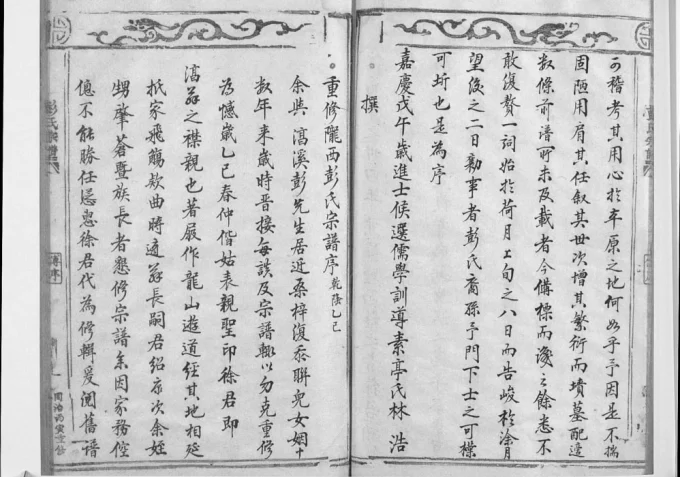 可稽考其用心於平原之地何如乎予因是不揣
固陋用肩其任叙其世次增其繁衍而墳墓配適
数條前譜所未及載者今備標而謄之餘悉不
敢復贅一詞始於荷月上旬之八日而告峻於涂月
望後之二日勷事者彭氏裔孫予門下士之可樸
可圻也是為序
嘉慶戊午歲進士候選儒學訓導素亭氏林浩
撰
重修隴西彭氏宗譜序乾隆乙巳
余與澫溪彭先生居近桑梓復忝聯兒女姻十
数年来歲時晋接每談及宗譜輒以勿克重修
為憾歲乙己春仲偕姑表親聖印徐君即
澫翁之襟親也著屐作龍山遊道經其地相延
抵家飛觴欸曲時適翁長嗣君紹次余姪
甥肇蒼暨族長者懇修宗譜余因家務倥
傯不能勝任慫恿徐君代為修輯爰閱舊譜
彭氏宗譜
同治丙寅重修